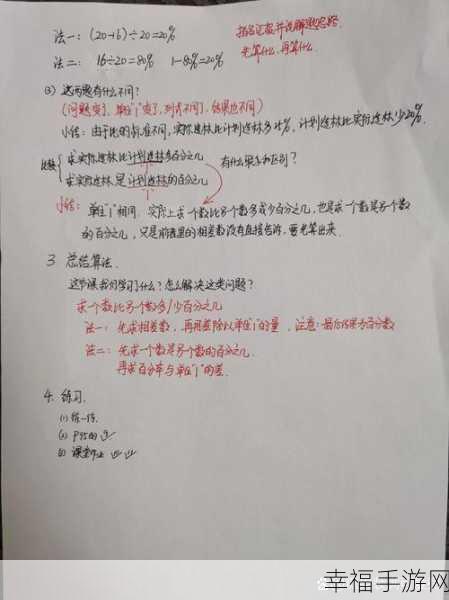 法一：(20-16)÷20=20%
法二：16÷20=80%  1-80%=20%
指名汇报并说解题思路
先算什么，再算什么
(3) 这两题有什么不同？
(问题变了，单位"1"变了，列式不同了，结果也不同)
小结：由于比的标准不同，实际造林比计划造林多25%，计划造林比实际造林少20%。
比较 { 求实际造林比计划造林多百分之几
求实际造林是计划造林的百分之几
有什么联系和区别？
小结：单位"1"相同，实际上求一个数比另一个数多或少百分之几，也是求一个数是另一个数
的百分之几，只是前面里的相差数没有直接告诉，要先算出来。
3. 总结算法.
这节课我们学习了什么？怎么解决这类问题？
求一个数比另一个数多/少百分之几
法一：先求相差数，再用差除以单位"1"的量，注意：最后结果为百分数
法二：先求一个数是另一个数的百分之几.
再求百分率与单位"1"的差.
4. 练习.
(1) 练一练.
(2) P95的
(3) 课堂作业
幸福手游网